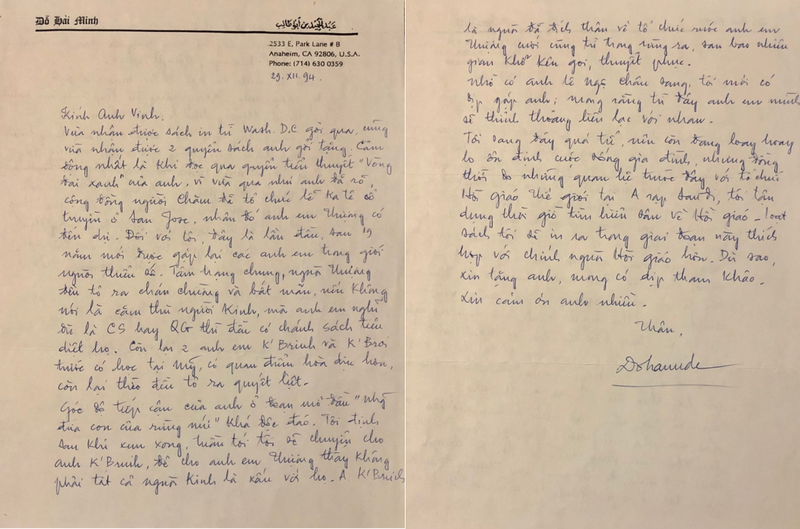 Đỗ Hải Minh
2533 E. Park Lane # B
Anaheim, CA 92806, U.S.A.
Phone: (714) 630 0359
29.XII.94.
Kính Anh Vinh,
Vừa nhận được sách in từ Wash. D.C gởi qua, cũng
vừa nhận được 2 quyển sách anh gởi tặng. Cảm
động nhất là khi đọc qua quyển tiểu thuyết "Vòng
đai xanh" của anh, vì vừa qua như anh đã rõ,
cộng đồng người Chăm đã tổ chức lễ Katê cổ
truyền ở San Jose, nhân đó anh em Thượng có
đến dự. Đối với tôi, đây là lần đầu, sau 19
năm mới được gặp lại các anh em trong giới
người thiểu số. Tâm trạng chung, người Thượng
đều tỏ ra chán chường và bất mãn, nếu không
nói là căm thù người Kinh, mà anh em nghĩ
dù là CS hay QG thì đều có chánh sách tiêu
diệt họ. Còn lại 2 anh em K'Briuh và K'Broi
trước có học tại Mỹ, có quan điểm hòa dịu hơn,
còn lại thảy đều tỏ ra quyết liệt.
Góc độ tiếp cận của anh ở đoạn mở đầu "những
đứa con của rừng núi" khá độc đáo. Tôi định
sau khi xem xong, tuần tới tôi sẽ chuyển cho
anh K'Briuh, để cho anh em Thượng thấy không
phải tất cả người Kinh là xấu với họ. A K'Briuh
là người đã đích thân về tổ chức rước anh em
Thượng cuối cùng từ trong rừng ra, sau bao nhiêu
gian khổ kêu gọi, thuyết phục.
Nhờ có anh lê ngọc châu sang, tôi mới có
dịp gặp anh; mong rằng từ đây anh em mình
sẽ thỉnh thoảng liên lạc với nhau.
Tôi sang đây quá trễ, nên còn đang loay hoay
lo ổn định cuộc sống gia đình, nhưng đồng
thời do những quan hệ trước đây với tổ chức
Hồi giáo thế giới tại A rap Saudi, tôi tận
dụng thời giờ tìm hiểu sâu về Hồi giáo - loạt
sách tôi đã in ra trong giai đoạn này thích
hợp với chính người Hồi giáo hơn. Dù sao,
xin tặng anh, mong có dịp tham khảo.
Xin cảm ơn anh nhiều.
Thân,
Dohamide